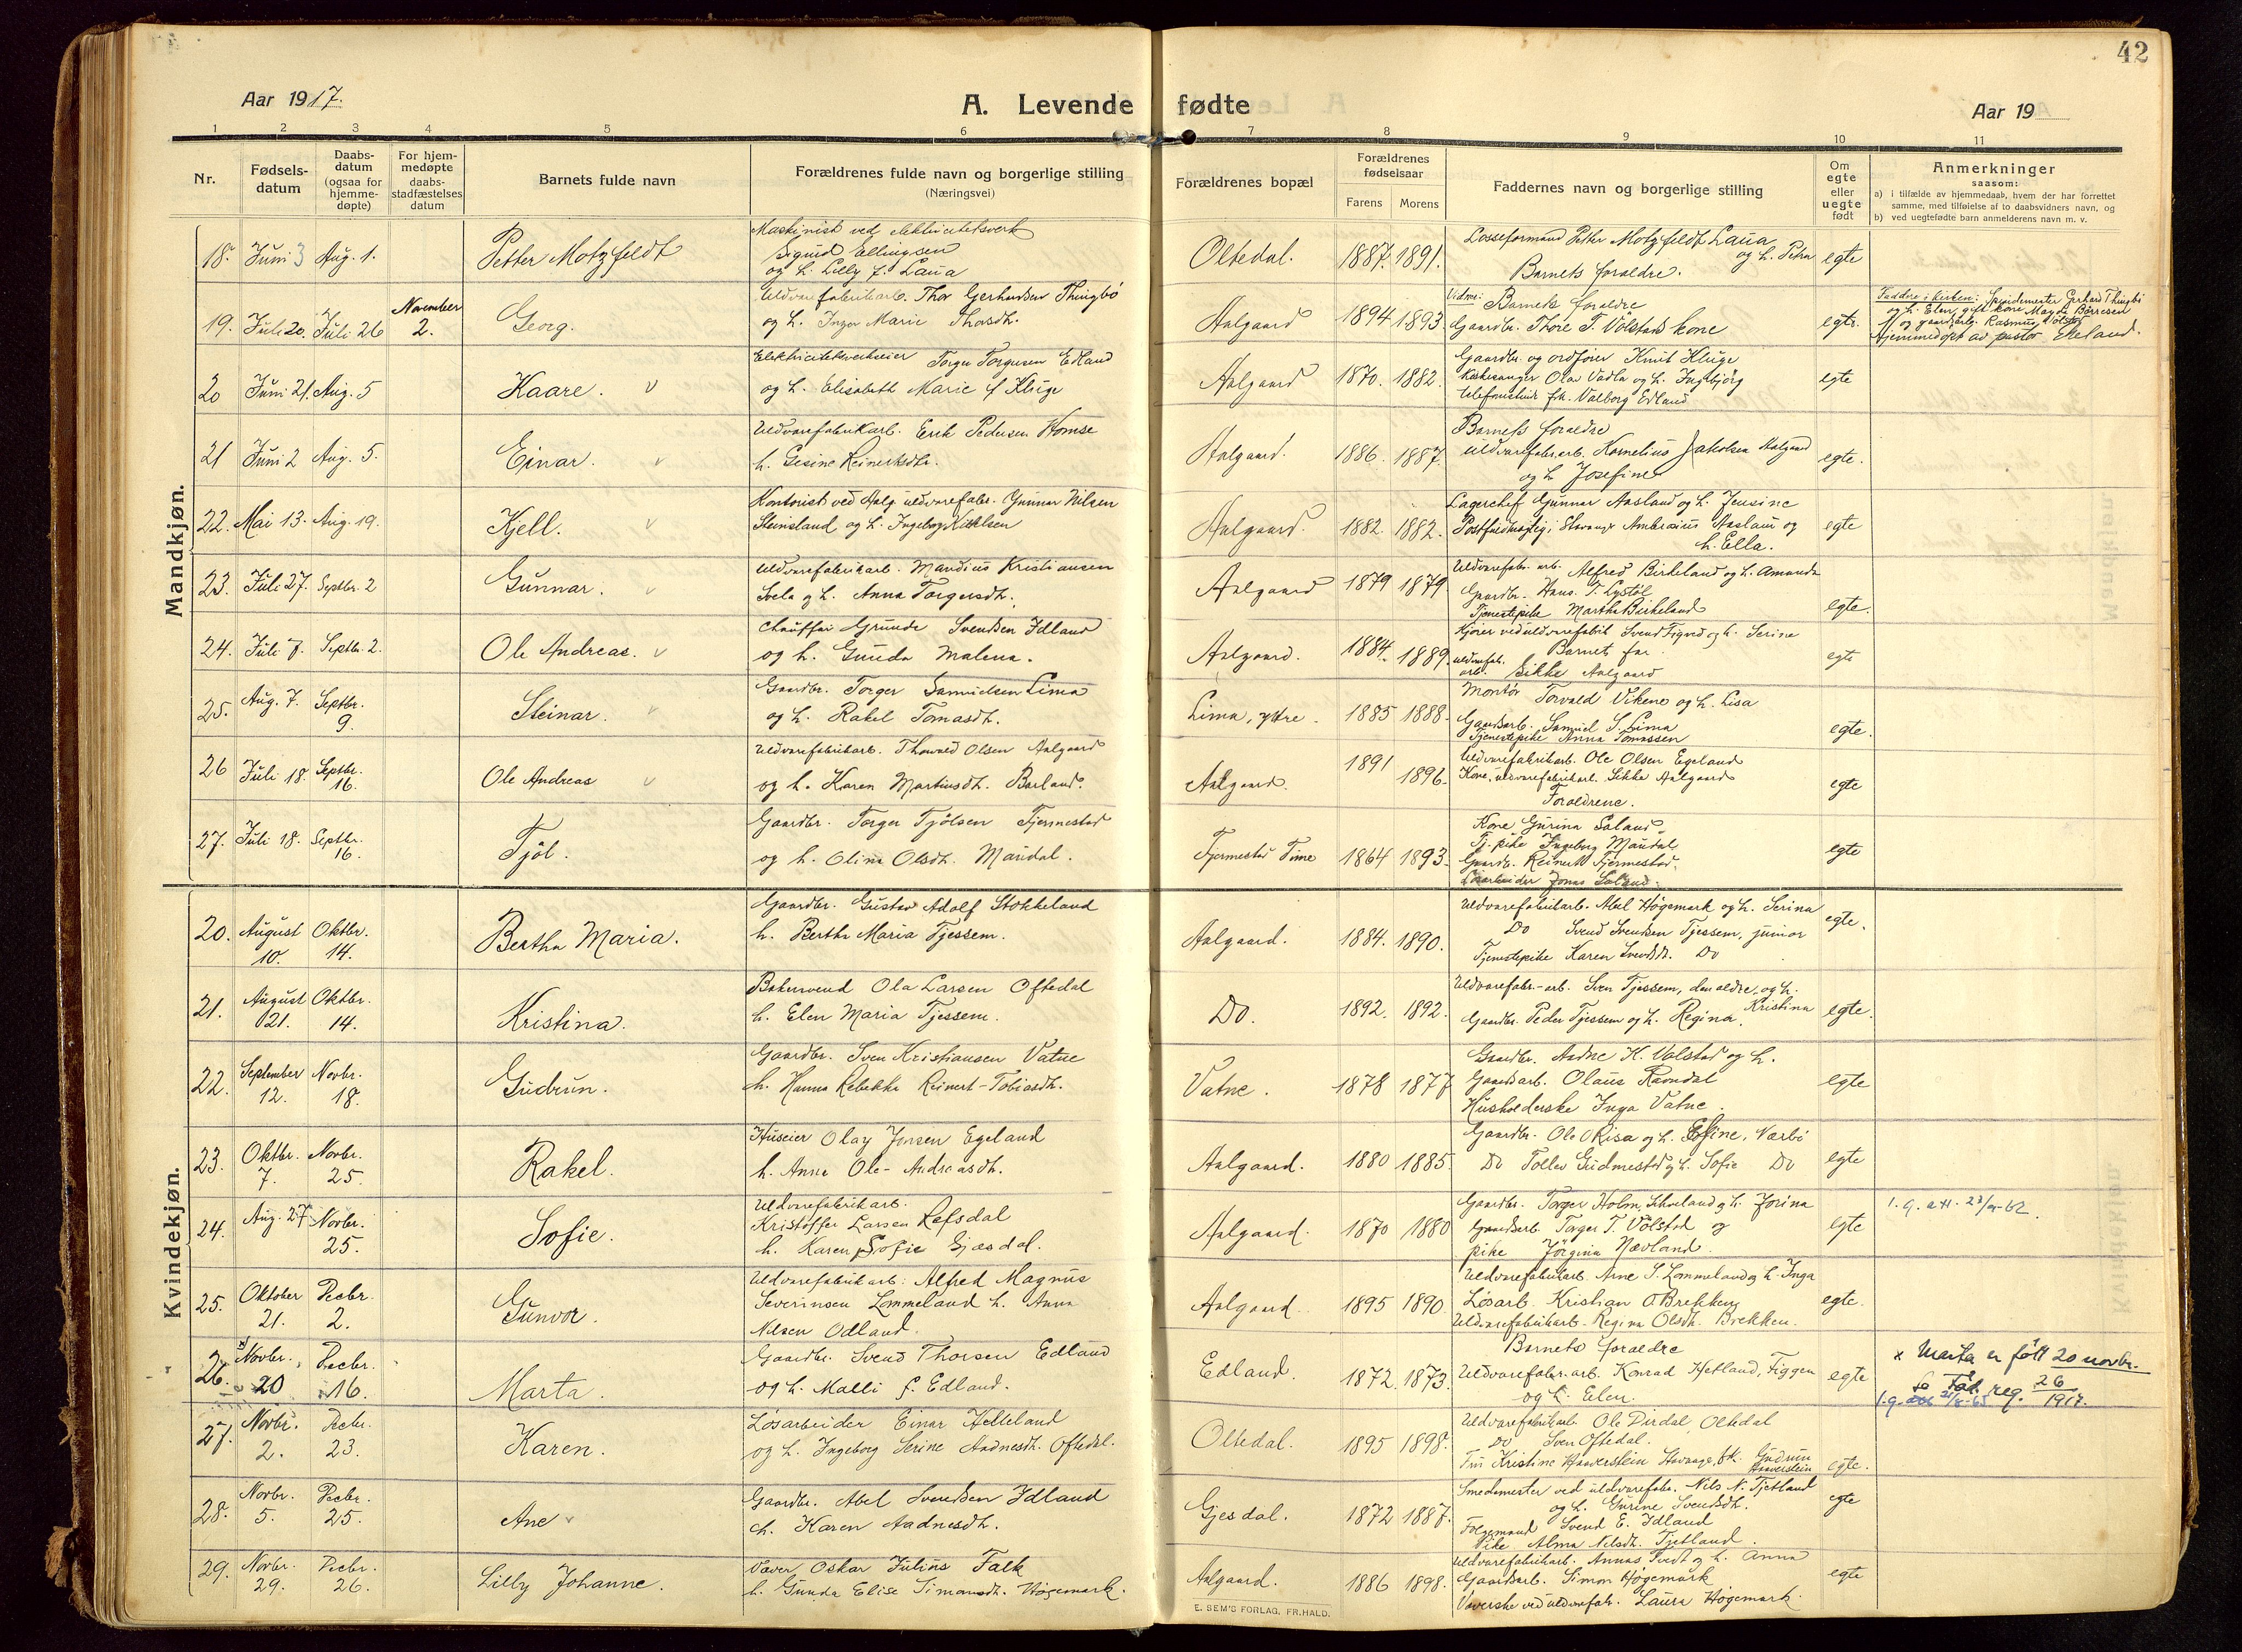 42
Aar 1917.
A. Levende fødte
Aar 19
1 2 3 4 5 6 7 8 9 10 11
Nr.
Fødsels-
datum
Daabs-
datum
(ogsaa for
hjemme-
døpte)
For hjem-
medøpte
daabs-
stadfæstelses
datum
Barnets fulde navn
Forældrenes fulde navn og borgerlige stilling
(Næringsvei)
Forældrenes bopæl
Forældrenes
fødselsaar
Farens Morens
Faddernes navn og borgerlige stilling
Om
egte
eller
uegte
født
Anmerkninger
saasom:
a) i tilfælde av hjemmedaab, hvem der har forrettet
samme, med tilføielse af to daabsvidners navn, og
b) ved uegtefødte barn anmelderens navn m. v.
Mandkjøn.
18. Juni 3 Aug. 1. Petter Motzfeldt
Maskinist ved elektricitetsverk
Sigurd Ellingsen
og h. Lilly f. Laua
Oltedal. 1887. 1891.
Losseformand Petter Motzfeldt Laua
og h. Petra
Barnets forældre.
egte
19. Juli 20. Juli 26 November
2.
Georg.
Uldvarefabrikarb. Thor Gerhardsen Thingbø
og h. Inger Marie Thorsdh.
Aalgaard 1894 1893.
Vidne: Barnets forældre
Gaardbr. Thore T. Vølstads kone
egte.
Faddre i kirken: Spindemester Gerhard Thingbø
og h. Elen, gift kone Magda Børresen
og gaardarb. Rasmus Vølstad
Hjemmedøpt av pastor Ekeland.
20 Juni 21. Aug. 5 Kaare. v
Torger Torgersen Edland
og h. Elisabeth Marie f Kluge
Aalgaard 1870. 1882.
Gaardbr. og ordfører Knut Kluge
Kirkesanger Olav Vadla og h. Ingebjørg
telefonistinde frk. Valborg Edland
egte
21 Juni 2 Aug. 5. Einar. v
Uldvarefabrikarb. Erik Pedersen Homse
h. Gesine Reinertsdtr.
Aalgaard. 1886. 1887.
Barnets forældre
Uldvarefabr.arb. Kornelius Jakobsen Aalgaard
og h Josefine
egte.
22. Mai 13. Aug. 19. Kjell. v
Kontorist ved Aalg uldvarefabr. Gunnar Nilsen
Steinsland og h. Ingeborg
Aalgaard. 1882. 1882.
Lagerchef Gunnar Aasland og h. Jensine
Postfuldmægtig i Stavanger Ambrosius Aasland og
h. Ella.
egte
23. Juli 27. Septbr. 2 Gunnar. v
Uldvarefabrikarb. Mandius Kristiansen
Svela og h. Anna Torgersdh.
Aalgaard 1879 1879.
Uldvarefabr. arb. Alfred Birkeland og h. Amanda
Gaardbr. Hans. T. Lystøl
Tjenestepike Martha Birkeland
egte.
24. Juli 7. Septbr. 2. Ole Andreas. v
Chauffør Grunde Svendsen Idland
og h. Gunda Malena.
Aalgaard. 1884. 1889.
Kjører ved uldvarefabrik Svend Figved og h. Serine
Barnets far
uldvarefab.
arb. Sikke Aalgaard
egte
25. Aug. 7. Septbr.
9.
Steinar. v
Gaardbr. Torger Samuelsen Lima
og h. Rakel Tomasdh.
Lima, ytre. 1885 1888.
Montør Torvald Vikene og h. Lisa
Gaardsarb. Samuel S. Lima
Tjenestepike Anna Tomassen
egte.
26 Juli 18. Septbr.
16.
Ole Andreas v
Uldvarefabrikarb. Thorvald Olsen Aalgaard
og h. Karen Martinusdh. Berland.
Aalgaard. 1891 1896.
Uldvarefabrikarb. Ole Olsen Egeland
Kone, uldvarefabrikarb. Sikke Aalgaard
Forældrene.
egte
27. Juli 18. Septbr.
16.
Tjøl.
Gaardbr. Torger Tjølsen Tjermestad
og h. Olina Olsdh. Maudal.
Tjermestad Time 1864 1893.
Kone Gurina Saland
Tj. pike Ingeborg Maudal
Gaardbr. Reinert Tjermestad.
Løsarbeider Jonas Saland.
egte
Kvindekjøn.
20. August
10.
Oktbr.
14.
Bertha Maria.
Gaardbr. Gustav Adolf Stokkeland
h. Bertha Maria Tjessem.
Aalgaard. 1884. 1890.
Uldvarefabrikarb. Abel Høgemark og h. Serina
Do Svend Svendsen Tjessem, junior
Tjenestepike Karen Svendsdh. Do
egte.
21. August
21.
Oktbr.
14.
Kristina.
Bakersvend Ola Larsen Oftedal
h. Elen Maria Tjessem.
Do. 1892. 1892.
Uldvarefabr.-arb. Sven Tjessem, den ældre, og h.
Kristina
Gaardbr. Peder Tjessem og h. Regina.
egte.
22. September
12.
Novbr.
18.
Gudrun.
Gaardbr. Sven Kristiansen Vatne
h. Hanna Rebekka Reinert-Tobiasdh.
Vatne. 1878 1877
Gaardbr. Aadne K. Vølstad og h.
Gaardsarb. Olaus Ravndal
Husholderske Inga Vatne.
egte
23. Oktbr.
7.
Novbr.
25.
Rakel.
Huseier Olay Jensen Egeland
h. Anna Ole-Andreasdh.
Aalgaard. 1880 1885.
Gaardbr. Ole Risa og h. Nærbø
Do Tollev Gudmestad og h. Sofie Do
egte
24. Aug. 27 Novbr.
25.
Sofie.
Uldvarefabrikarb.
Kristoffer Larsen Refsdal
h. Karen Sofie Gjesdal.
Aalgaard. 1870 1880
Gaardbr. Torger Holm, og h. Jorina
Gaardsarb. Torger T. Vølstad og
pike Jørgina Nævland.
egte
25. Oktober
21.
Decbr.
2.
Gunvor.
Uldvarefabrikarb: Alfred Magnus
Severinsen Lommeland h. Anna
Nilsen Odland.
Aalgaard. 1895 1890.
Uldvarefabrikarb. Arne S. Lommeland og h. Inga
Løsarb. Kristian O Brekken
Uldvarefabrikarb. Regina Olsdh. Brekken.
egte.
26. x Novbr.
20
Decbr.
16.
Marta.
Gaardbr. Svend Thorsen Edland
og h. Malli f. Edland.
Edland. 1872. 1873.
Barnets forældre
Uldvarefabr.arb. Konrad Hetland, Figgen
og h. Elen.
egte
x Marta er født 20 novbr.
reg. 26
1917.
27. Novbr.
2.
Decbr.
23.
Karen.
Løsarbeider Einar Helleland
og h. Ingeborg Serine Aadnesdh. Oftedal.
Oltedal. 1895 1898.
Uldvarefabrikarb. Ole Dirdal, Oltedal
Do Sven Oftedal.
Fru Kristine Haaverstein Stavanger, frk. Gudrun
Haaverstein
egte.
28. Novbr.
5.
Decbr.
25.
Ane v
Gaardbr. Abel Svendsen Idland
h. Karen Aadnesdh.
Gjesdal. 1872 1887.
Smedemester ved uldvarefabr. Nils N. Tjetland
og h. Gurine Svendsdh.
Følgemand Svend E. Idland
Pike Alma Nilsdh. Tjetland.
egte
29. Novbr.
29.
Decbr.
26.
Lilly Johanne.
Væver Oskar Julius Falk
h. Gunda Elise Simonsdh. Høgemark.
Aalgaard. 1886 1898.
Uldvarefabrikarb. Annas Tvedt og h. Anna
Gaardsarb. Simon Høgemark
Væverske ved uldvarefabr. Laura Høgemark.
egte
E. SEM'S FORLAG, FR.HALD.